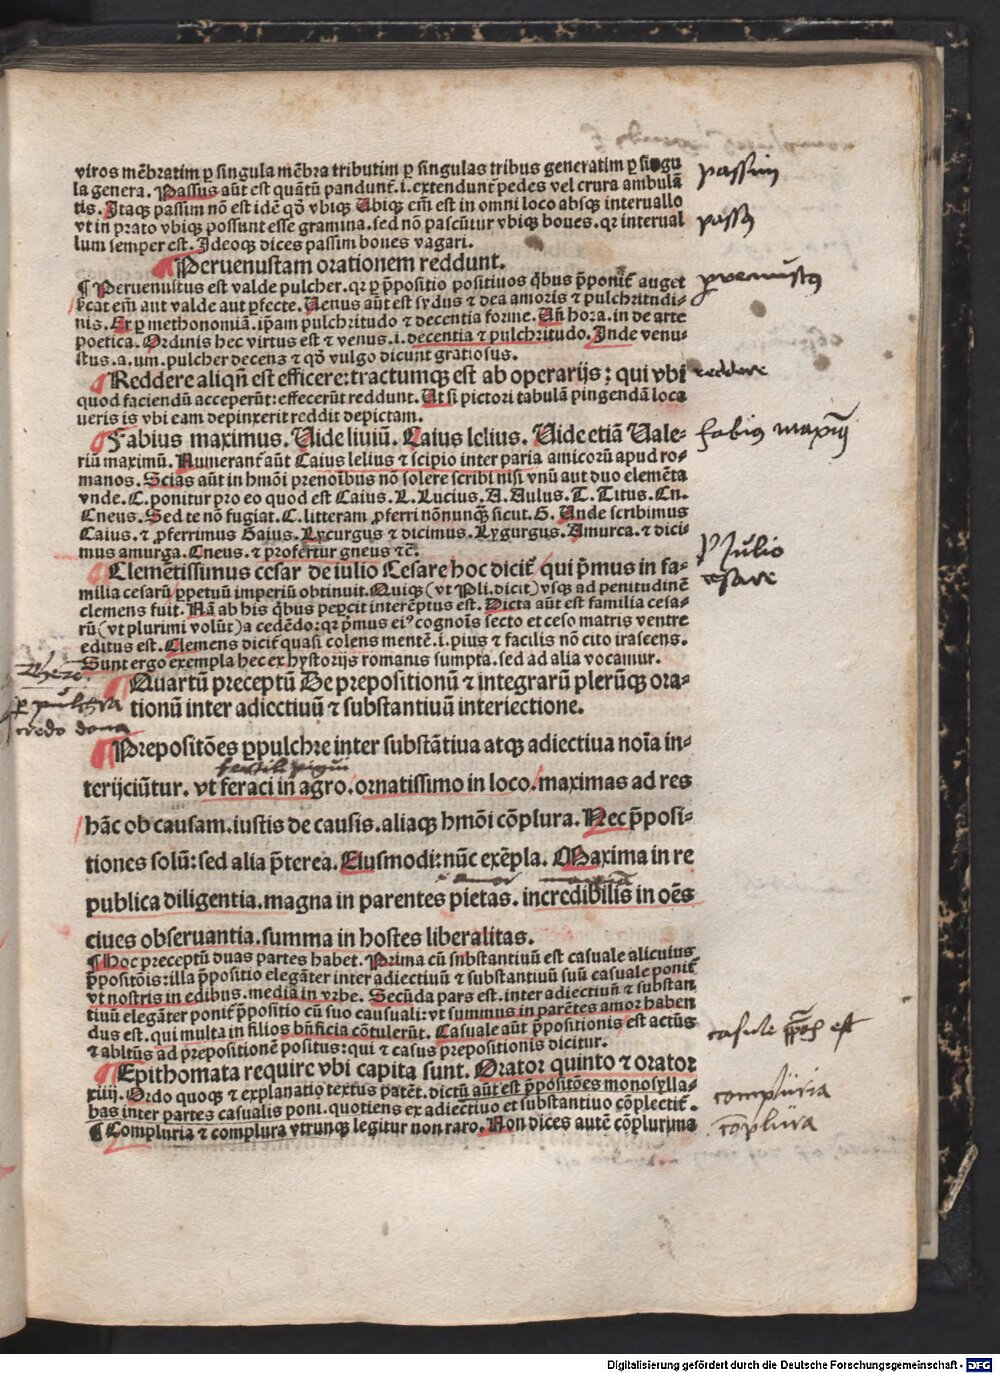 viros mēbratim ꝑ singula mēbra tributim ꝑ singulas tribus generatim ꝑ singu
la genera. Passus aūt est quātū pandunt᷑.i.extendunt᷑ pedes vel crura ambulā
tis. Itaqꝫ passim nō est idē qd̄ vbiqꝫ Ubiqꝫ em̄ est in omni loco absqꝫ interuallo
vt in prato vbiqꝫ possunt esse gramina. sed nō pascūtur vbiqꝫ boues. qꝛ interual
lum semper est. Ideoqꝫ dices passim boues vagari.
¶ Peruenustam orationem reddunt.
¶ Peruenustus est valde pulcher. qꝛ ꝑ p̄positio positiuos qͥbus p̄ponit᷑ auget
em̄ aut valde aut ꝑfecte. Uenus aūt est sydus ⁊ dea amoris ⁊ pulchritudi-
nis. Ex ꝑ methonomiā. ip̄am pulchritudo ⁊ decentia forme. Un̄ hora. in de arte
poetica. Ordinis hec virtus est ⁊ venus. i. decentia ⁊ pulchritudo. Inde venu-
stus.a.um. pulcher decens ⁊ qd̄ vulgo dicunt gratiosus.
¶ Reddere aliqn̄ est efficere: tractumqꝫ est ab operarijs: qui vbi
quod faciendū acceperūt: effecerūt reddunt. Ut si pictori tabulā pingendā loca
ueris is vbi eam depinxerit reddit depictam.
¶ Fabius maximus. Uide liuiū. Caius lelius. Uide etiā Uale-
riū maximū. Numerant᷑ aūt Caius lelius ⁊ scipio inter paria amicorū apud ro-
manos. Scias aūt in hmōi prenoībus nō solere scribi nisi vnū aut duo elemēta
vnde. C. ponitur pro eo quod est Caius. L. Lucius. A. Aulus. T. Titus. Cn.
Cneus. Sed te nō fugiat. C. litteram ꝓferri nōnunqꝫ̄ sicut. G. Unde scribimus
Caius. ⁊ ꝓferrimus Gaius. Lycurgus ⁊ dicimus. Lygurgus. Amurca. ⁊ dici-
mus amurga. Cneus. ⁊ profertur gneus ⁊c̄.
¶ Clemētissimus cesar de iulio Cesare hoc dicit᷑ qui p̄mus in fa-
milia cesarū ꝑpetuū imperiū obtinuit. Quiqꝫ (vt Pli. dicit) vsqꝫ ad penitudinē
clemens fuit. Nā ab his qͥbus peꝑcit interēptus est. Dicta aūt est familia cesa-
rū (vt plurimi volūt) a cedēdo: qꝛ p̄mus eiꝰ cognoīs secto et ceso matris ventre
editus est. Clemens dicit᷑ quasi colens mentē. i. pius ⁊ facilis nō cito irascens.
Sunt ergo exempla hec ex hystorijs romanis sumpta. sed ad alia vocamur.
¶ Quartū preceptū De prepositionū ⁊ integrarū plerūqꝫ ora-
tionū inter adiectiuū ⁊ substantiuū interiectione.
¶ Prepositōes ꝑpulchre inter substātiua atqꝫ adiectiua noīa in-
terijciūtur. vt feraci in agro. ornatissimo in loco. maximas ad res
hāc ob causam. iustis de causis. aliaqꝫ hmōi cōplura. Nec p̄posi-
tiones solū: sed alia p̄terea. Eiusmodi: nūc exēpla. Maxima in re
publica diligentia. magna in parentes pietas. incredibilis in oēs
ciues obseruantia. summa in hostes liberalitas.
¶ Hoc preceptū duas partes habet. Prima cū substantiuū est casuale alicuius
p̄positōis: illa p̄positio elegāter inter adiectiuū ⁊ substantiuū suū casuale ponit᷑
vt nostris in edibus. media in vrbe. Secūda pars est. inter adiectiuū ⁊ substan
tiuū eleganter ponit᷑ p̄positio cū suo causuali: vt summus in parētes amor haben
dus est. qui multa in filios bn̄ficia cōtulerūt. Casuale aūt p̄positionis est actūs
⁊ abltūs ad prepositionē positus: qui ⁊ casus prepositionis dicitur.
¶ Epithomata require vbi capita sunt. Orator quinto ⁊ orator
xiiij. Ordo quoqꝫ ⁊ explanatio textus patēt. dictū aūt est p̄positōes monosylla-
bas inter partes casualis poni. quotiens ex adiectiuo et substantiuo cōplectit᷑.
¶ Compluria ⁊ complura vtrunqꝫ legitur non raro. Non dices autē cōplurima
passim
passꝰ
ꝑvenustꝰ
reddere
fabiꝰ maximꝰ
Julio
cesare
credo dona
casuale p̄pōis est
compluria
cōplura
Digitalisierung gefördert durch die Deutsche Forschungsgemeinschaft - DFG